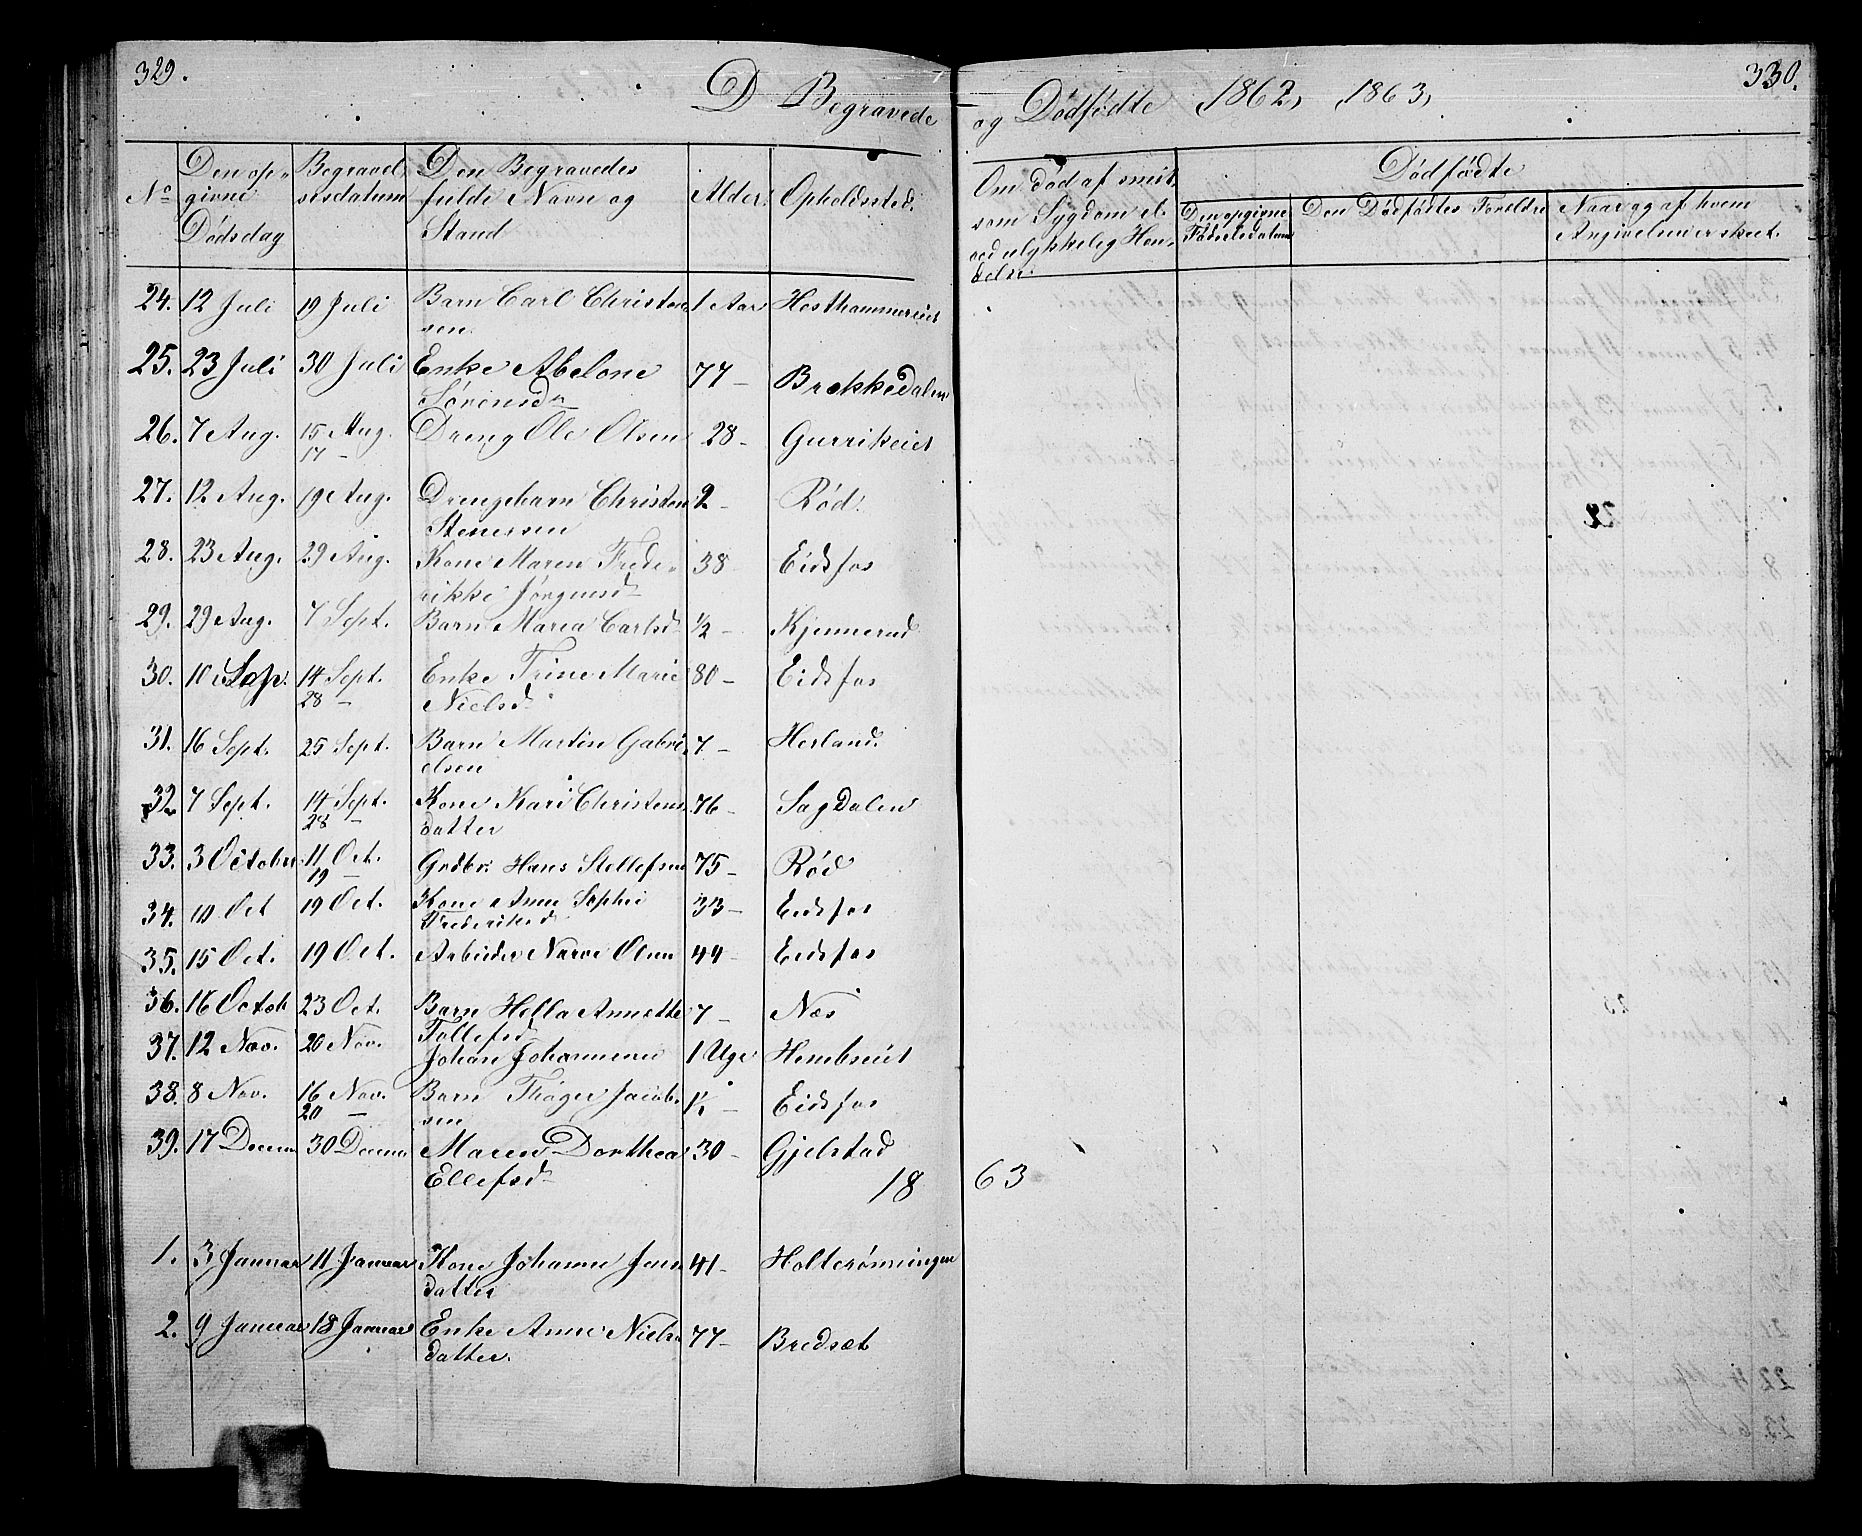 329.
D Begravede
og Dødfødte 1862, 1863,
330.
No
Den op-
givne
Dødsdag
Begravel-
sesdatum
Den Begravedes
fulde Navn og
Stand
Alder.
Opholdssted.
Om død af smit-
som Sygdom el.
ved ulykkelig Hæn-
delse.
Dødfødte
Den opgivne
Fødselsdatum
Den Dødfødtes Foreldre
Naar og af hvem
Angivelsen er skeet.
24. 12 Juli 19 Juli Barn Carl Christen 1 Aar Hesthammereiet
sen
25. 23 Juli 30 Juli Enke Abelone 77 – Brekkedalen
Sørensd
26. 7 Aug. 15 Aug. Dreng Ole Olsen 28 – Gurrikeiet
17 –
27. 12 Aug. 19 Aug. Drengebarn Christen 2 – Rød
Stenersen
28. 23 Aug. 29 Aug. Kone Maren Frede- 38 Eidsfos
rikke Jørgensd
29. 29 Aug. 7 Sept. Barn Maria Carlsd ½ – Kjennerud
30. 10 Sep. 14 Sept. Enke Trine Marie 80 – Eidsfos
28 – Nielsd
31. 16 Sept. 25 Sept. Barn Martin Gabri 7 – Herland
elsen
32 7 Sept. 14 Sept. Kone Kari Christens 76 – Sagdalen
28 – datter
33. 3 October 11 Oct. Grdbr. Hans Stellefsen 75 – Rød
19 –
34. 10 Oct 19 Oct. Kone Anne Sophie 33 – Eidsfos
Frederiksd
35. 15 Oct. 19 Oct. Arbeider Narve Olsen 44 – Eidsfos
36. 16 Octob 23 Oct. Barn Hella Annette 7 – Næs
Tollefsd
37. 12 Nov. 20 Nov. Johan Johannesen 1 Uge Hembseiet
38. 8 Nov. 16 Nov. Barn Thøger Jacob- – Eidsfos
20 – sen
39. 17 Decem 30 Decem Maren Dorthea 30 – Gjelstad
Ellefsd
1863
1. 3 Januar 11 Januar Kone Johanne Jens 41 – Holterønningen
datter
2. 9 Januar 18 Januar Enke Anne Niels 77 – Bredsæt
datter.